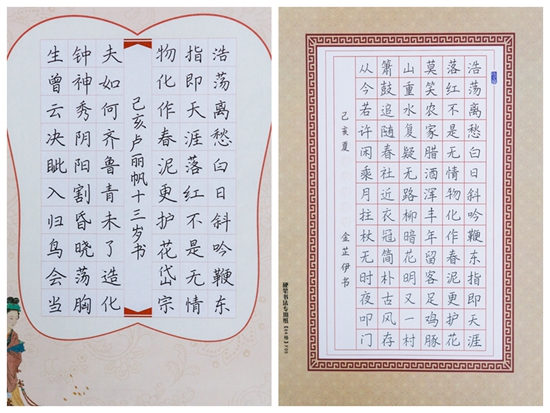 浩荡离愁白日斜吟鞭东
指即天涯落红不是无情
物化作春泥更护花岱宗
己亥卢丽帆十三岁书
夫如何齐鲁青未了造化
钟神秀阴阳割昏晓荡胸
生曾云决眦入归鸟会当
浩荡离愁白日斜吟鞭东指即天涯
落红不是无情物化作春泥更护花
莫笑农家腊酒浑丰年留客足鸡豚
山重水复疑无路柳暗花明又一村
箫鼓追随春社近衣冠简朴古风存
从今若许闲乘月拄杖无时夜叩门
己亥夏 金芷伊书
硬笔书法专用纸